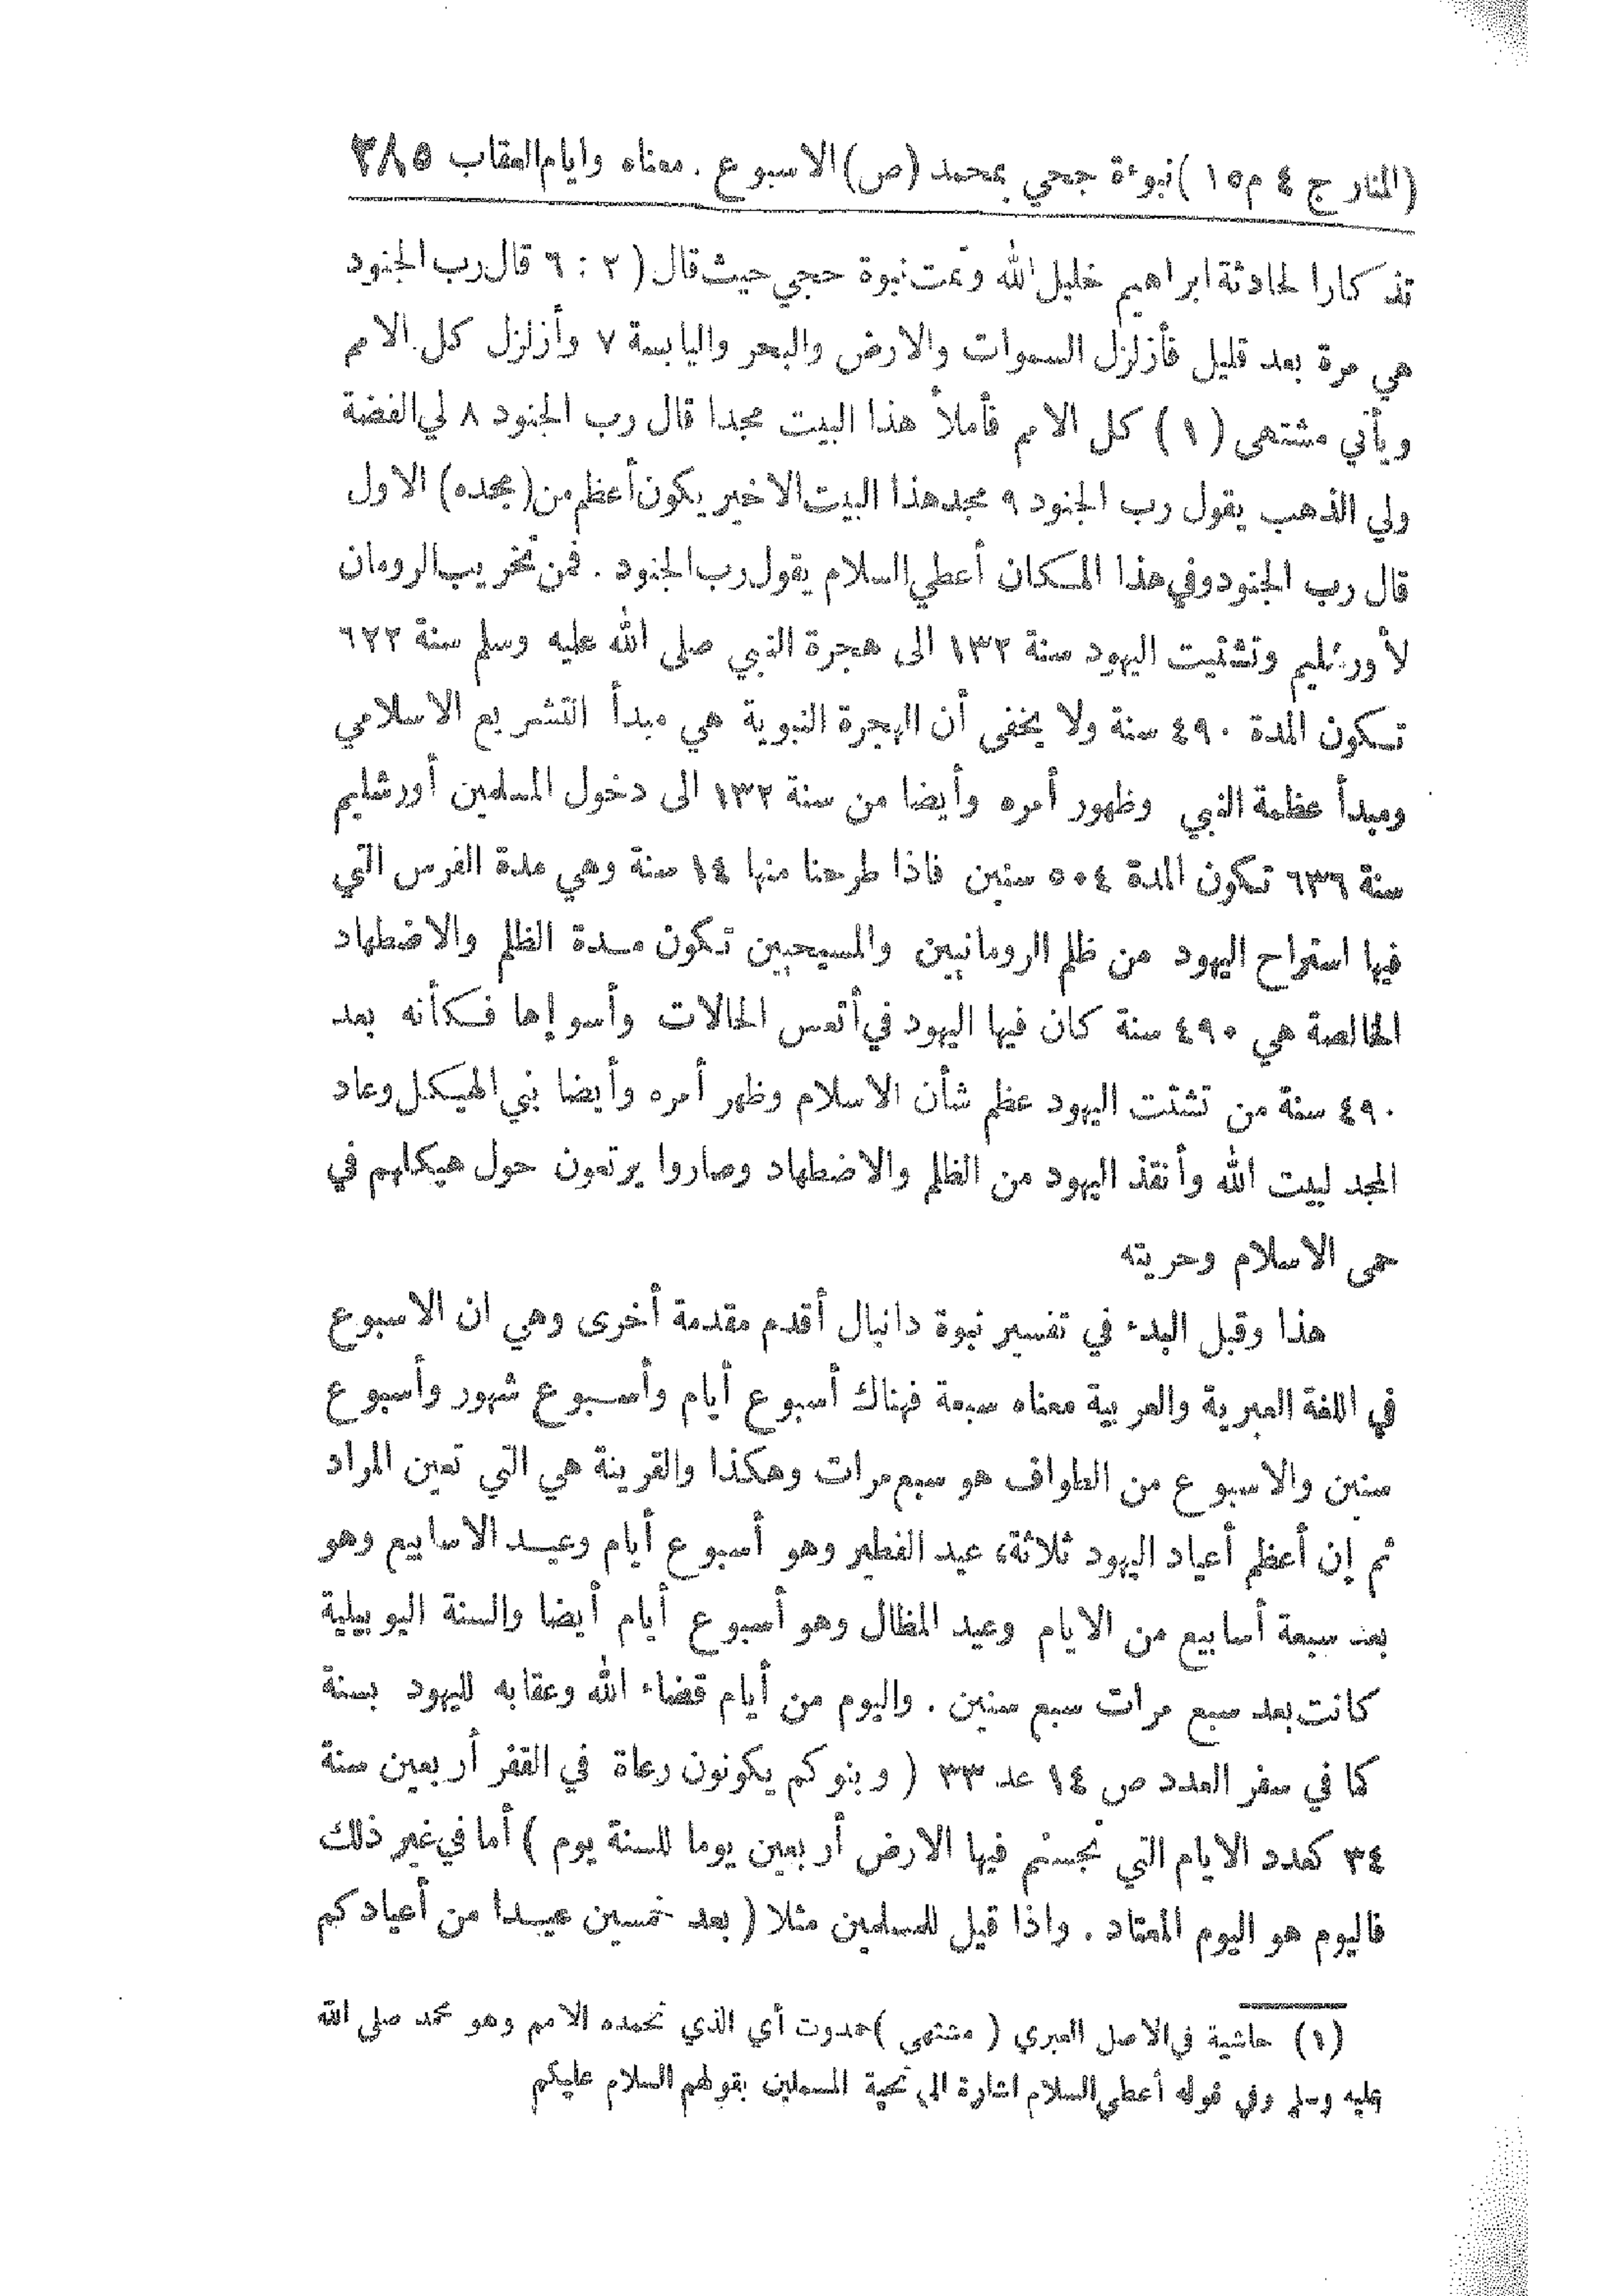 (المنار ج ٤ م ١٥) نبوءة جحي بمحمد (ص) الاسبوع. معناه وايام العقاب ٣٨٥
تذكارا لحادثة ابراهيم خليل الله وتمت نبوة حجي حيث قال (٢ : ٦ قال رب الجنود
هي مرة بعد قليل فأزلزل السموات والارض والبحر واليابسة ٧ وأزلزل كل الامم
ويأتي مشتهى (١) كل الامم فأملأ هذا البيت مجدا قال رب الجنود ٨ لي الفضة
ولي الذهب يقول رب الجنود ٩ مجد هذا البيت الاخير يكون أعظم من (مجده) الاول
قال رب الجنود وفي هذا المكان أعطي السلام يقول رب الجنود . فمن تخريب الرومان
لأورشليم وتشتيت اليهود سنة ١٣٢ الى هجرة النبي صلى الله عليه وسلم سنة ٦٢٢
تكون المدة ٤٩٠ سنة ولا يخفى أن الهجرة النبوية هي مبدأ التشريع الاسلامي
ومبدأ عظمة النبي وظهور أمره وأيضا من سنة ١٣٢ الى دخول المسلمين أورشليم
سنة ٦٣٦ تكون المدة ٥٠٤ سنين فاذا طرحنا منها ١٤ سنة وهي مدة الفرس التي
فيها استراح اليهود من ظلم الرومانيين والمسيحيين تكون مدة الظلم والاضطهاد
الخالصة هي ٤٩٠ سنة كان فيها اليهود في أتعس الحالات وأسوإها فكأنه بعد
٤٩٠ سنة من تشتت اليهود عظم شأن الاسلام وظهر أمره وأيضا بني الهيكل وعاد
المجد لبيت الله وأنقذ اليهود من الظلم والاضطهاد وصاروا يرتعون حول هيكلهم في
حمى الاسلام وحريته
هذا وقبل البدء في تفسير نبوة دانيال أقدم مقدمة أخرى وهي ان الاسبوع
في اللغة العبرية والعربية معناه سبعة فهناك أسبوع أيام وأسبوع شهور وأسبوع
سنين والاسبوع من الطواف هو سبع مرات وهكذا والقرينة هي التي تعين المراد
ثم إن أعظم أعياد اليهود ثلاثة، عيد الفطير وهو أسبوع أيام وعيد الاسابيع وهو
بعد سبعة أسابيع من الايام وعيد المظال وهو أسبوع أيام أيضا والسنة اليوبيلية
كانت بعد سبع مرات سبع سنين . واليوم من أيام قضاء الله وعقابه لليهود بسنة
كما في سفر العدد ص ١٤ عد ٣٣ ( وبنوكم يكونون رعاة في القفر أربعين سنة
٣٤ كعدد الايام التي تجسستم فيها الارض أربعين يوما للسنة يوم ) أما في غير ذلك
فاليوم هو اليوم المعتاد . واذا قيل للمسلمين مثلا ( بعد خمسين عيدا من أعيادكم
(١) حاشية في الاصل العبري ( مشتهى ) حمدوت أي الذي تحمده الامم وهو محمد صلى الله
عليه وسلم وفي قوله أعطي السلام اشارة الى تحية المسلمين بقولهم السلام عليكم